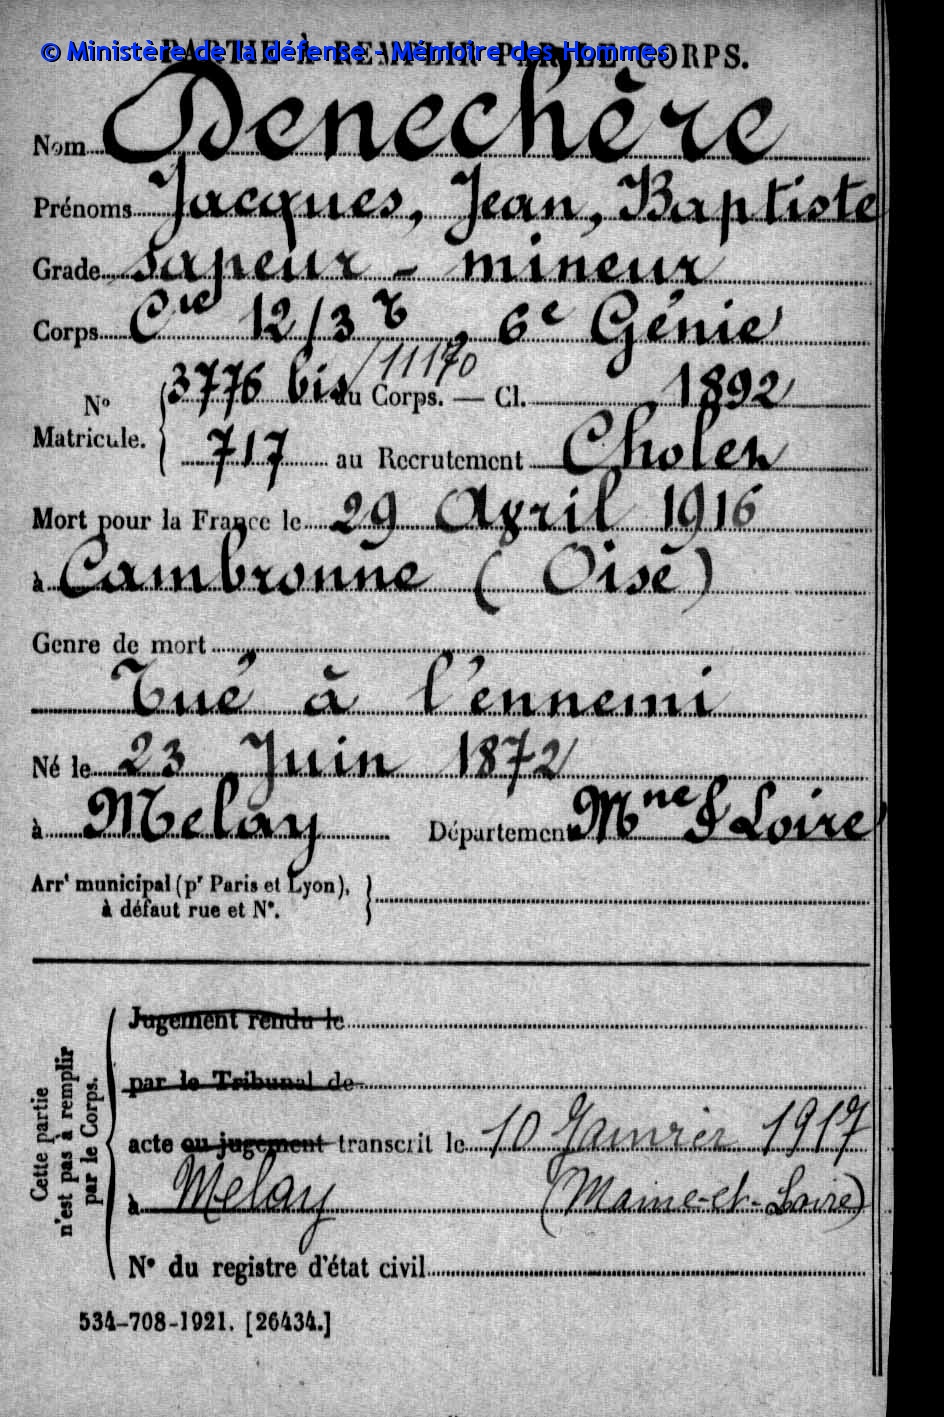 © Ministère de la défense - Mémoire des Hommes
PARTIE À REMPLIR PAR LE CORPS.
Nom Denechère
Prénoms Jacques, Jean, Baptiste
Grade sapeur - mineur
Corps Cie 12/3 T, 6e Génie
/11170
N° Matricule. { 3776 bis au Corps. — Cl. 1892
717 au Recrutement Cholet
Mort pour la France le 29 Avril 1916
à Cambronne (Oise)
Genre de mort
Tué à l'ennemi
Né le 23 Juin 1872
à Melay Département Mne & Loire
Arrt municipal (pr Paris et Lyon),
à défaut rue et N°.
Cette partie
n'est pas à remplir
par le Corps.
Jugement rendu le
par le Tribunal de
acte ou jugement transcrit le 10 Janvier 1917
à Melay (Maine-et-Loire)
N° du registre d'état civil
534-708-1921. [26434.]